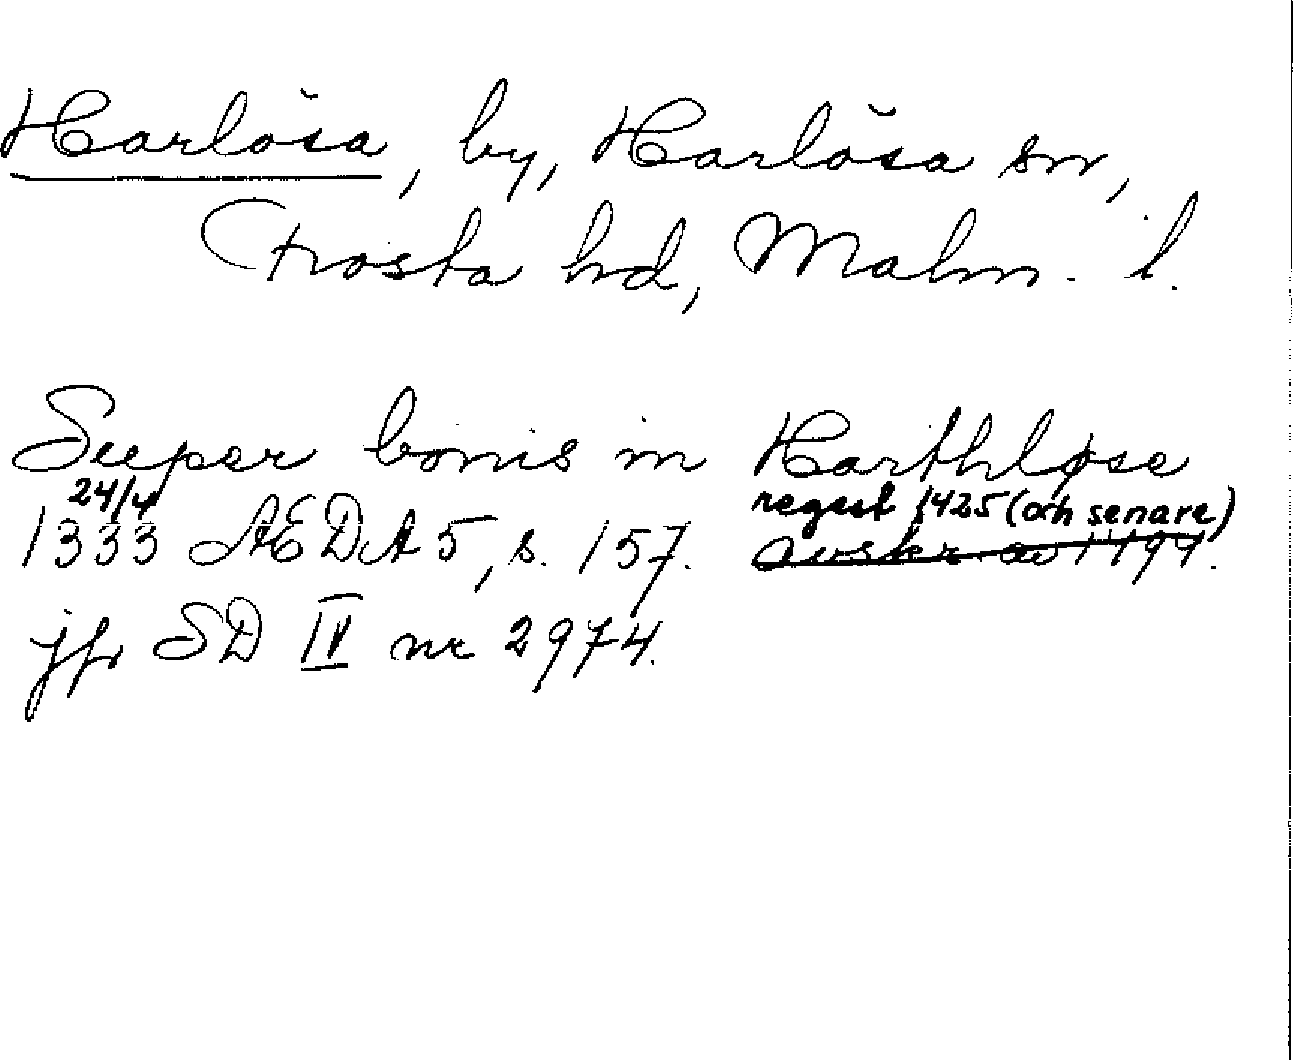 Harlösa, by, Harlösa sn,
Frosta hd, Malm. l.
Super bonis in Harthløse
24/4 regest 1425 (och senare)
1333 AEDA 5, s. 157. avskr av 1494.
jfr SD IV nr 2974.